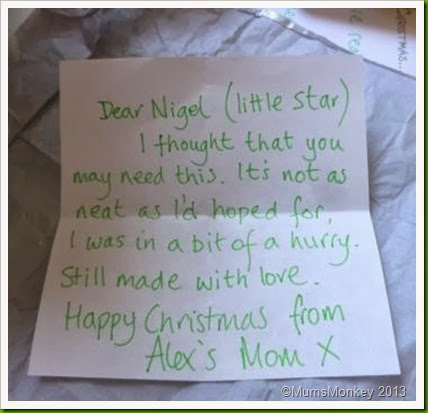 CHRISTMAS..
Dear Nigel (little star)
I thought that you
may need this. It's not as
neat as I'd hoped for,
I was in a bit of a hurry.
Still made with love.
Happy Christmas from
Alex's Mom X
©MumsMonkey 2013